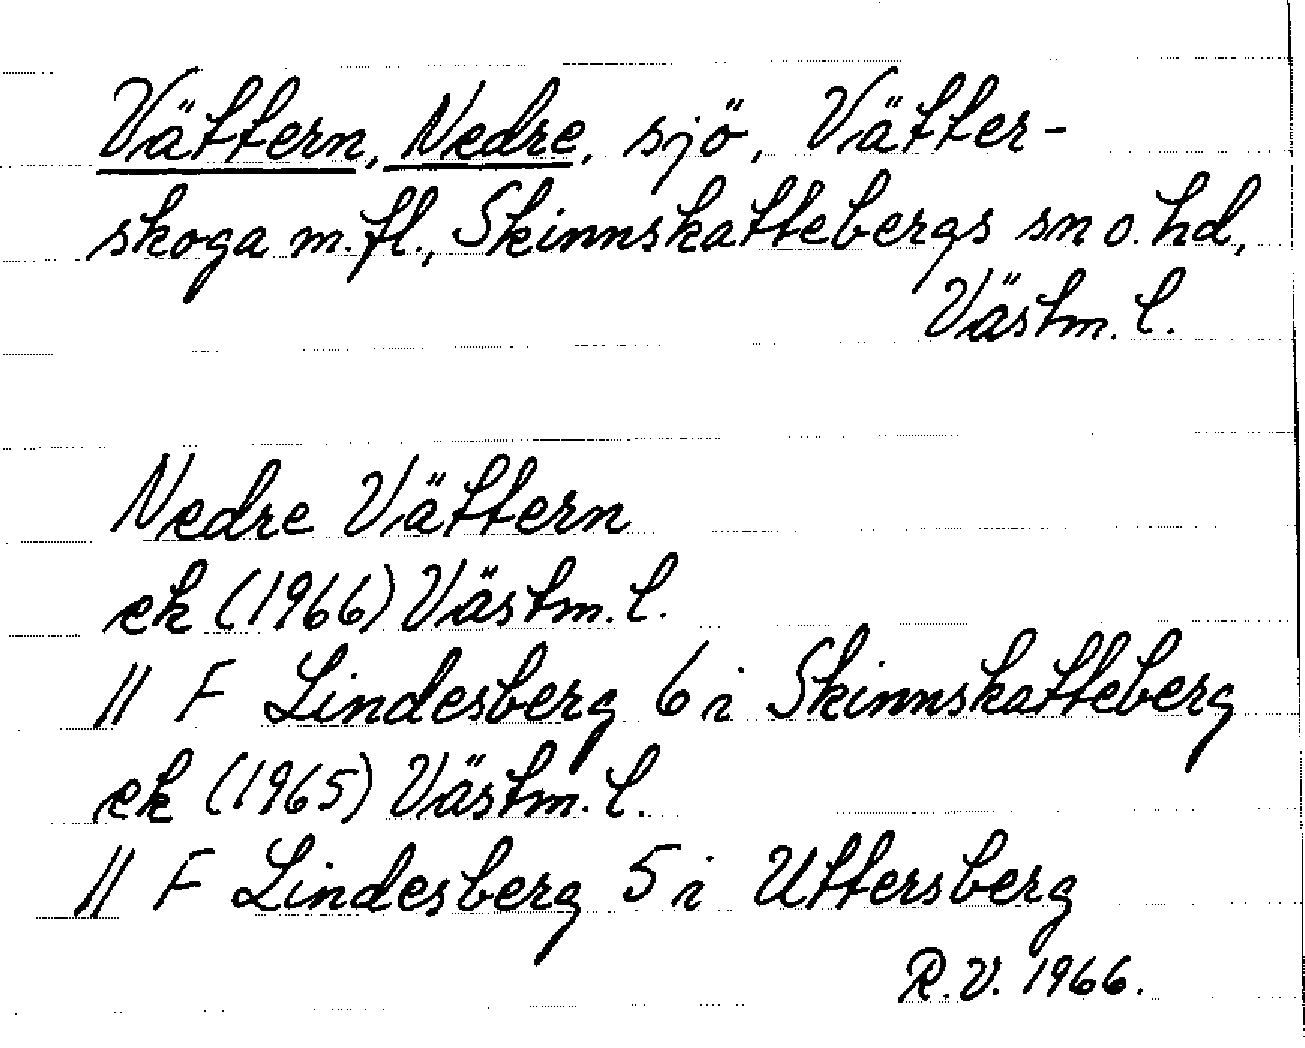 Vättern, Nedre, sjö, Vätter-
skoga m.fl., Skinnskattebergs sn o. hd,
Västm. l.
Nedre Vättern
ek (1966) Västm. l.
11 F Lindesberg 6 i Skinnskatteberg
ek (1965) Västm. l.
11 F Lindesberg 5 i Uttersberg
R.V. 1966.